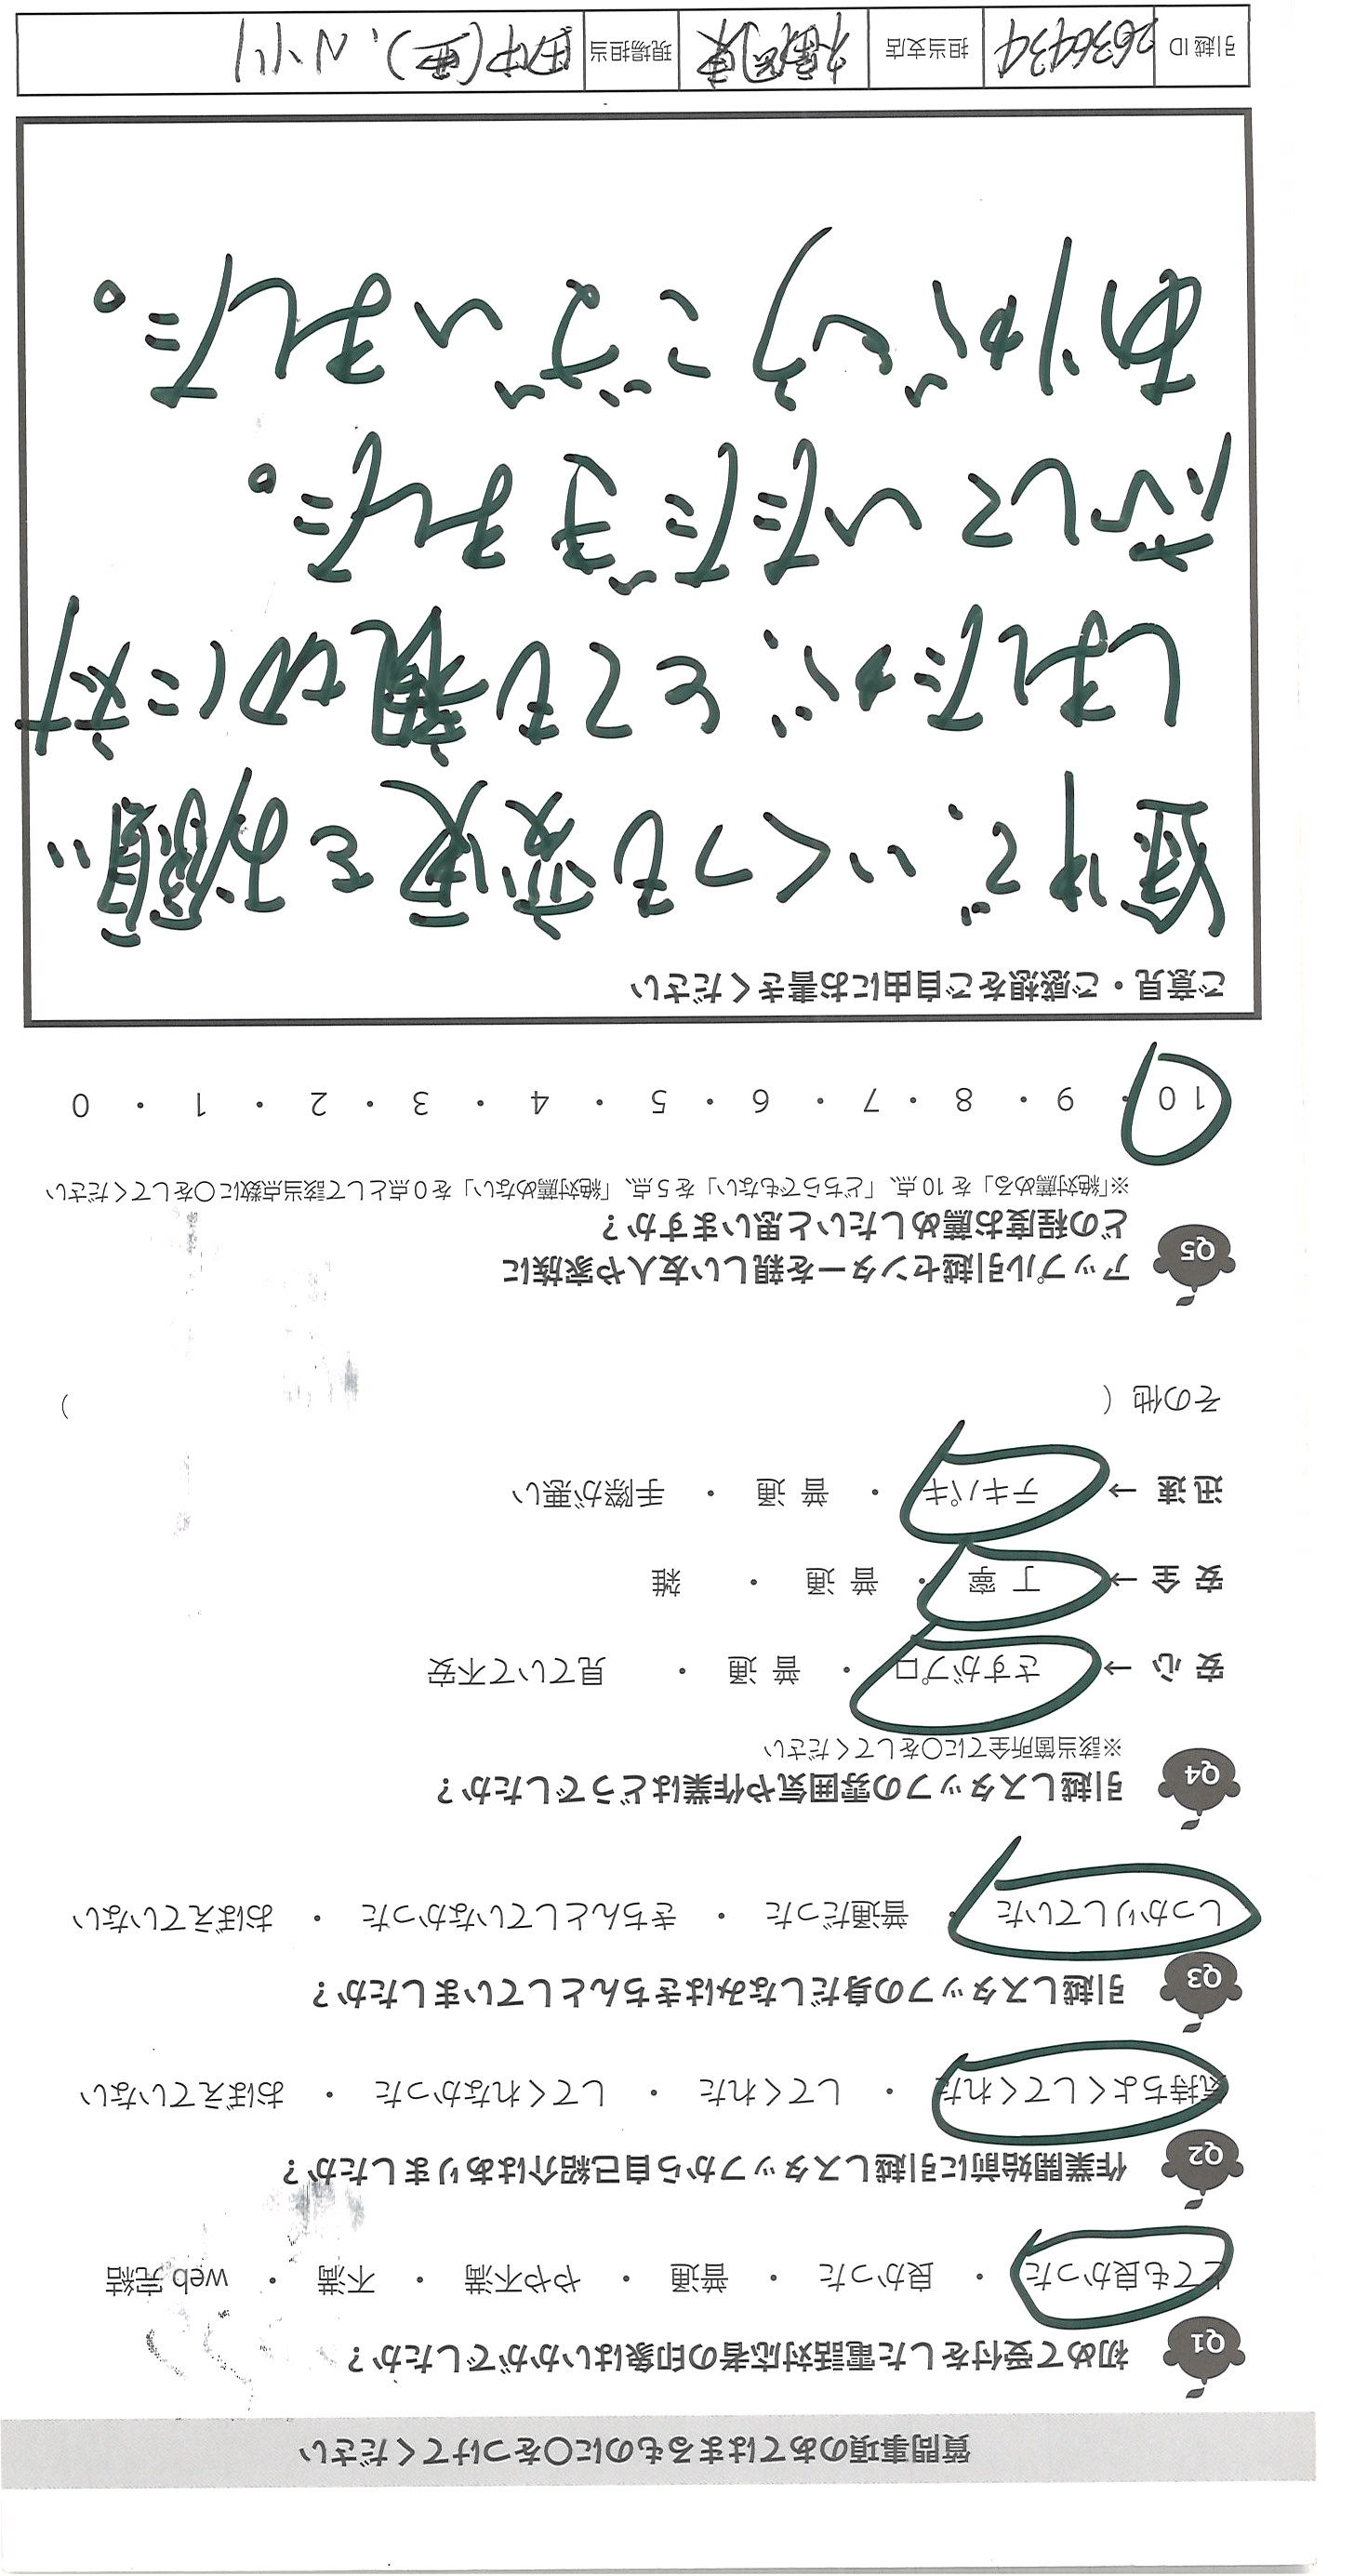 質問事項のあてはまるものに〇をつけてください
Q1 初めて受付をした電話対応者の印象はいかがでしたか？
とても良かった ・ 良かった ・ 普通 ・ やや不満 ・ 不満 ・ web 完結
Q2 作業開始前に引越しスタッフから自己紹介はありましたか？
気持ちよくしてくれた ・ してくれた ・ してくれなかった ・ おぼえていない
Q3 引越しスタッフの身だしなみはきちんとしていましたか？
しっかりしていた ・ 普通だった ・ きちんとしていなかった ・ おぼえていない
Q4 引越しスタッフの雰囲気や作業はどうでしたか？
※該当箇所全てに〇をしてください
安 心 → さすがプロ ・ 普 通 ・ 見ていて不安
安 全 → 丁 寧 ・ 普 通 ・ 雑
迅 速 → テキパキ ・ 普 通 ・ 手際が悪い
その他（ ）
Q5 アップル引越センターを親しい友人や家族に
どの程度お薦めしたいと思いますか？
※「絶対薦める」を 10 点、「どちらでもない」を 5 点、「絶対薦めない」を 0 点として該当点数に〇をしてください
10 ・ 9 ・ 8 ・ 7 ・ 6 ・ 5 ・ 4 ・ 3 ・ 2 ・ 1 ・ 0
ご意見・ご感想をご自由にお書きください
で、いくつも変更をお願い
しましたが、とても親切に対
応していただきました。
ありがとうございました。
引越ID 2636434 担当支店 福岡東 現場担当 田中(亜)、小川